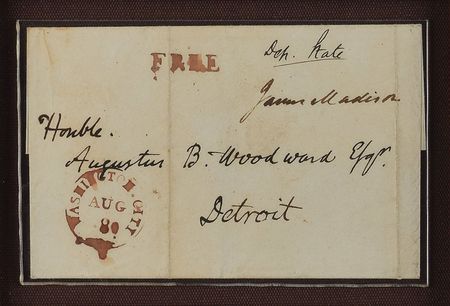 FREE
Dep. State
James Madison
Honble.
Augustus B. Woodward Esqr.
Detroit.
WASHINGTON CITY
AUG
8